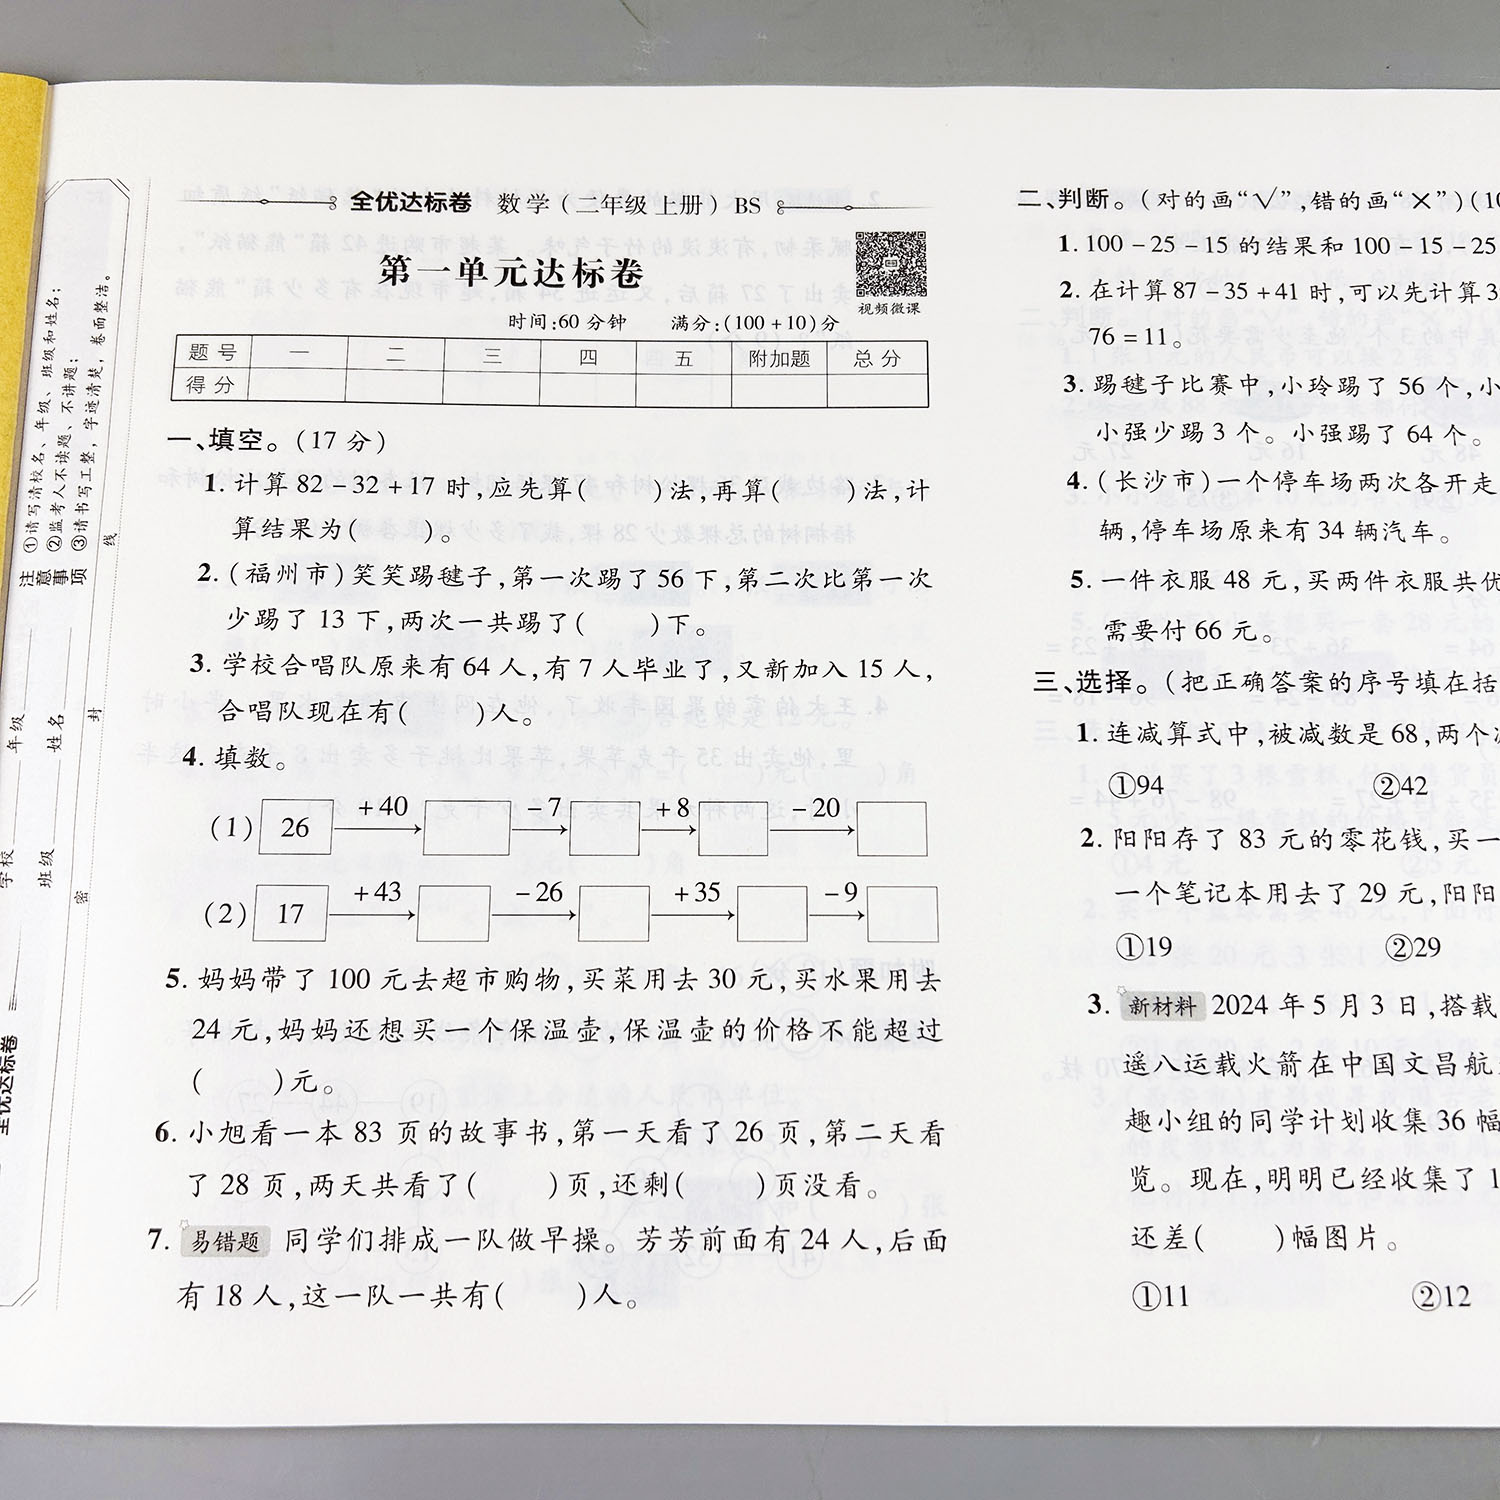 全优达标卷 数学(二年级 上册) BS
第一单元达标卷
视频微课
时间:60 分钟 满分:(100+10)分
题号 一 二 三 四 五 附加题 总分
得分
一、填空。(17 分)
1. 计算 82-32+17 时,应先算( )法,再算( )法,计
算结果为( )。
2. (福州市)笑笑踢毽子,第一次踢了 56 下,第二次比第一次
少踢了 13 下,两次一共踢了( )下。
3. 学校合唱队原来有 64 人,有 7 人毕业了,又新加入 15 人,
合唱队现在有( )人。
4. 填数。
(1) 26 +40 -7 +8 -20
(2) 17 +43 -26 +35 -9
5. 妈妈带了 100 元去超市购物,买菜用去 30 元,买水果用去
24 元,妈妈还想买一个保温壶,保温壶的价格不能超过
( )元。
6. 小旭看一本 83 页的故事书,第一天看了 26 页,第二天看
了 28 页,两天共看了( )页,还剩( )页没看。
7. 易错题 同学们排成一队做早操。芳芳前面有 24 人,后面
有 18 人,这一队一共有( )人。
二、判断。(对的画“√”,错的画“×”)(10
1. 100-25-15 的结果和 100-15-25
2. 在计算 87-35+41 时,可以先计算 3
76=11。
3. 踢毽子比赛中,小玲踢了 56 个,小
小强少踢 3 个。小强踢了 64 个。
4. (长沙市)一个停车场两次各开走
辆,停车场原来有 34 辆汽车。
5. 一件衣服 48 元,买两件衣服共优
需要付 66 元。
三、选择。(把正确答案的序号填在括
1. 连减算式中,被减数是 68,两个减
①94 ②42
2. 阳阳存了 83 元的零花钱,买一
一个笔记本用去了 29 元,阳阳
①19 ②29
3. 新材料 2024 年 5 月 3 日,搭载
遥八运载火箭在中国文昌航
趣小组的同学计划收集 36 幅
览。现在,明明已经收集了 1
还差( )幅图片。
①11 ②12
注意事项
①请写清校名、年级、班级和姓名;
②监考人不读题、不讲题;
③请书写工整,字迹清楚,卷面整洁。
年级
姓名
学校
班级
密 封 线
全优达标卷